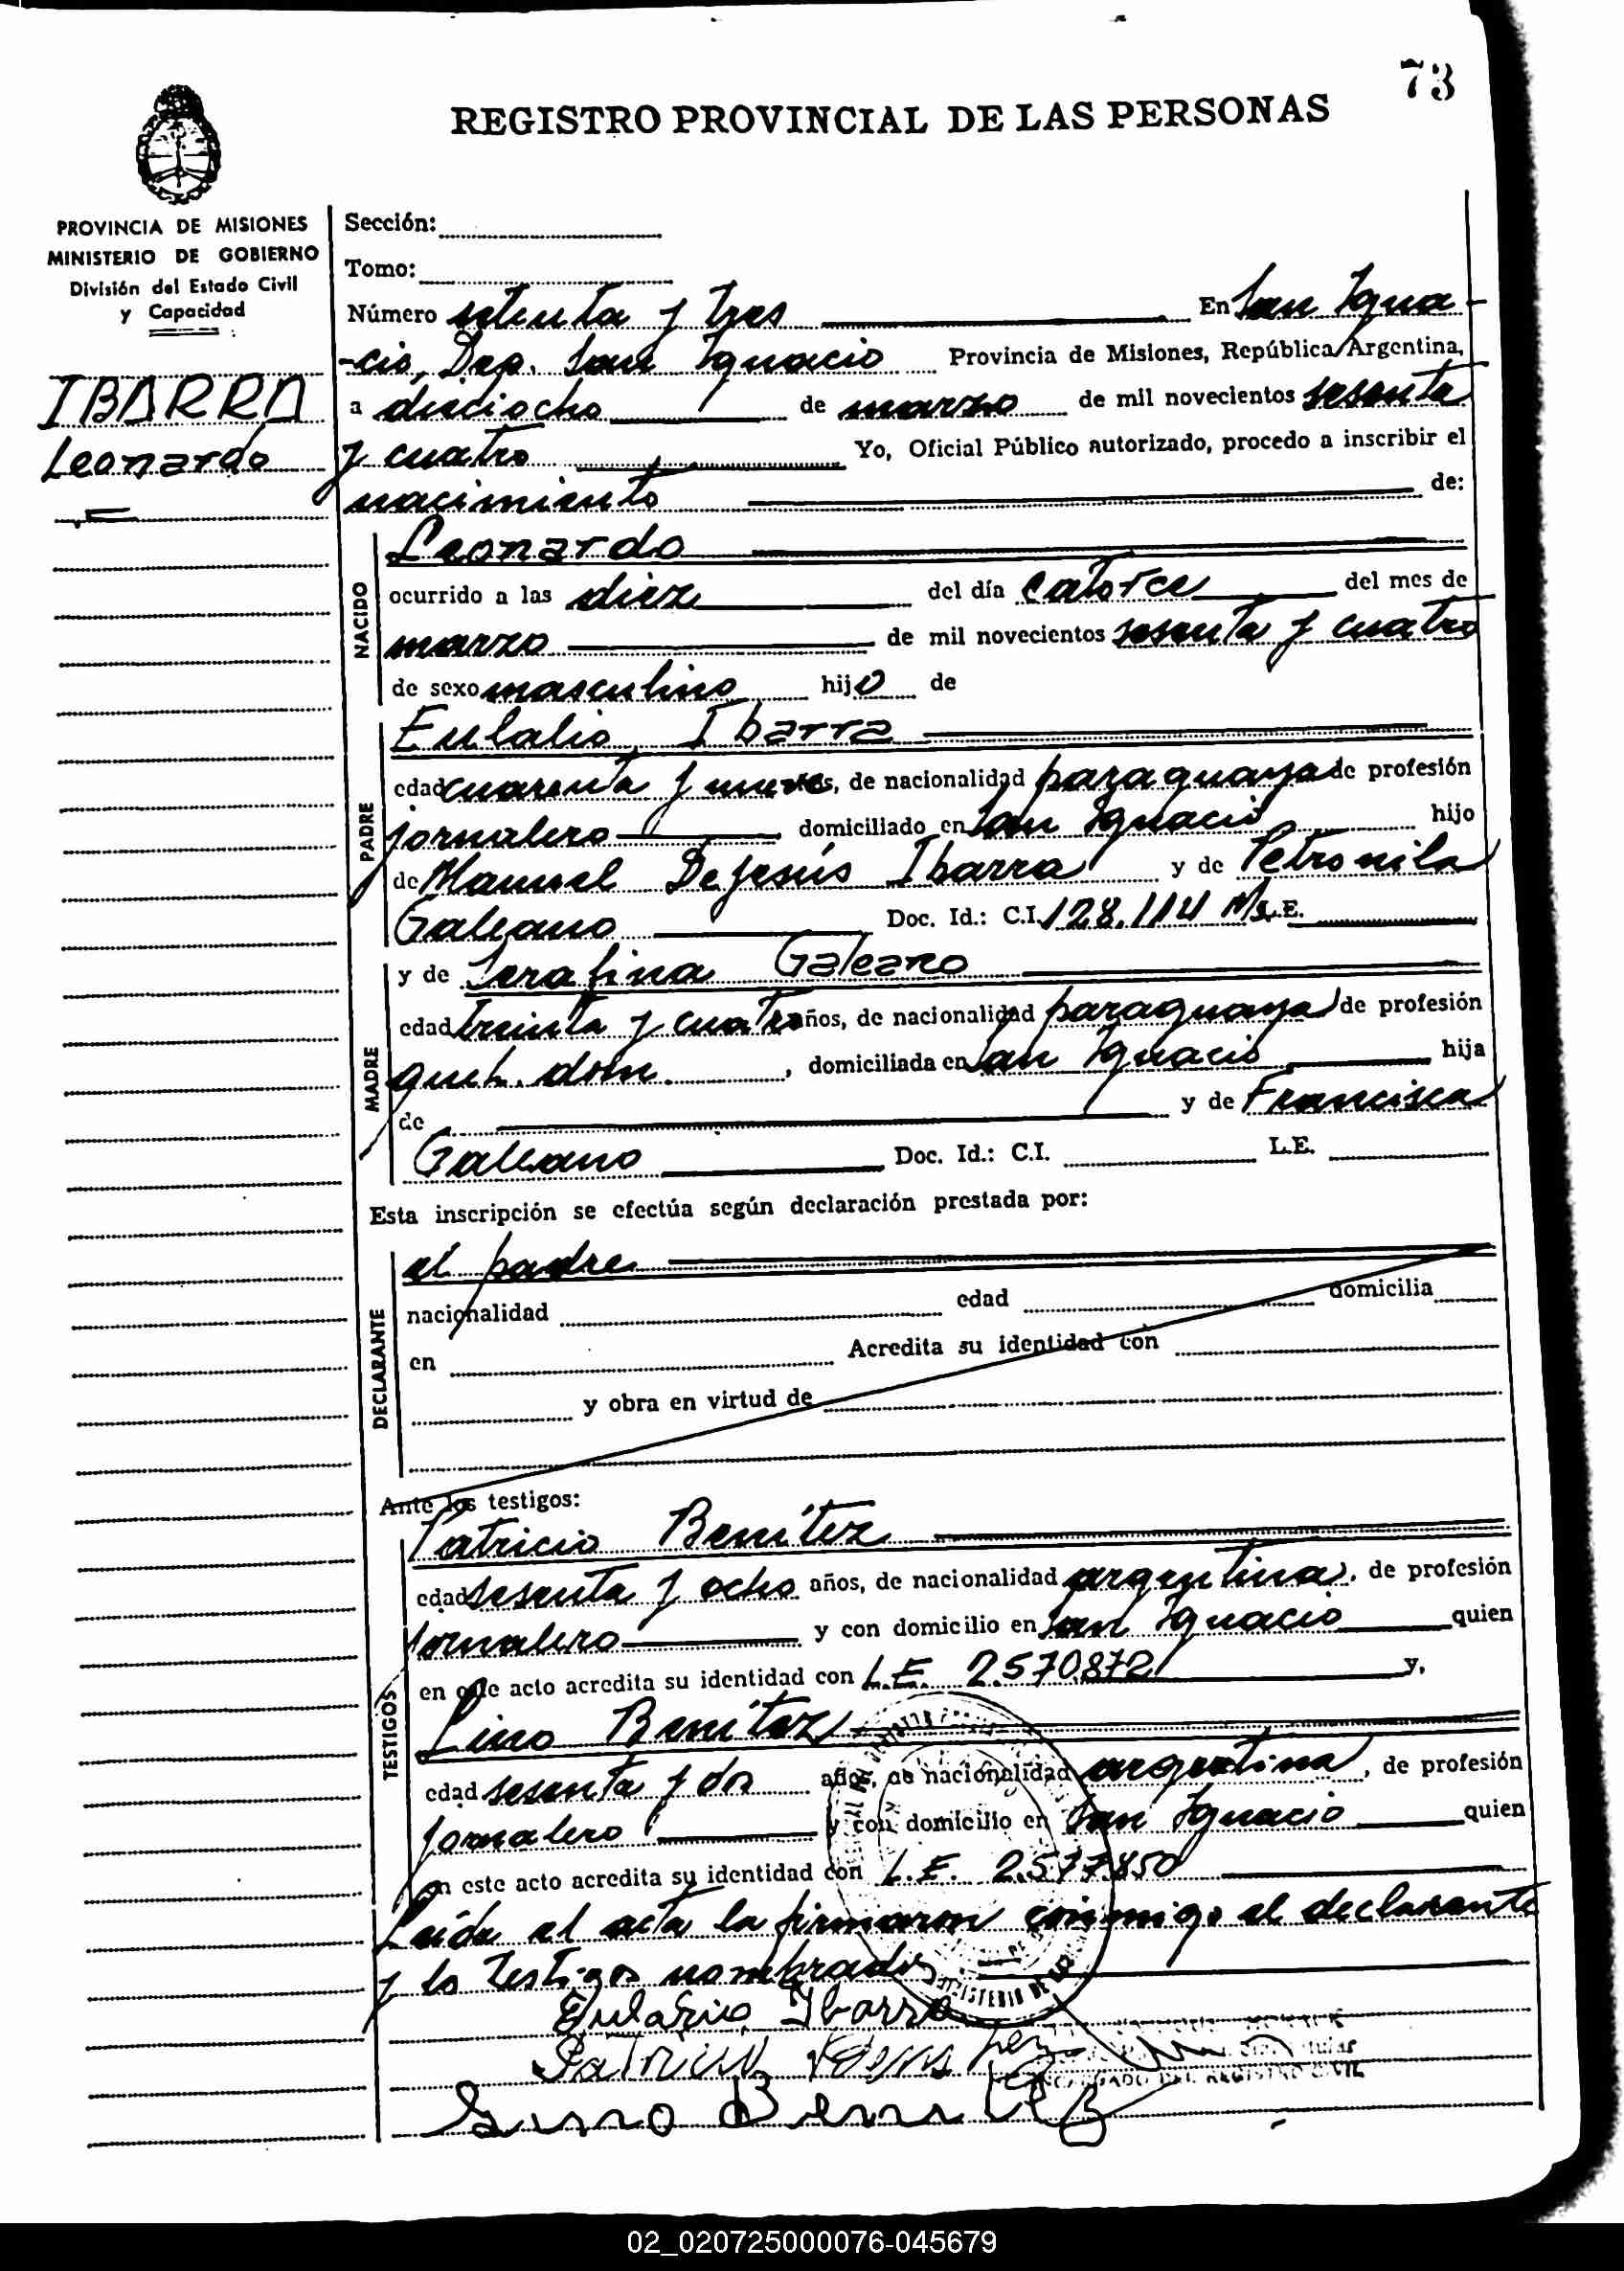 73
REGISTRO PROVINCIAL DE LAS PERSONAS
PROVINCIA DE MISIONES
MINISTERIO DE GOBIERNO
División del Estado Civil
y Capacidad
IBARRA
Leonardo
Sección:
Tomo:
Número setenta y tres En San Igna-
-cio, Dep. San Ignacio Provincia de Misiones, República Argentina,
a dieciocho de marzo de mil novecientos sesenta
y cuatro Yo, Oficial Público autorizado, procedo a inscribir el
nacimiento de:
NACIDO
Leonardo
ocurrido a las diez del día catorce del mes de
marzo de mil novecientos sesenta y cuatro
de sexo masculino hijo de
PADRE
Eulalio Ibarra
edad cuarenta y nueve años, de nacionalidad paraguaya de profesión
jornalero domiciliado en San Ignacio hijo
de Manuel DeJesús Ibarra y de Petronila
Galeano Doc. Id.: C.I. 128.114 L.E.
MADRE
y de Serafina Galeano
edad treinta y cuatro años, de nacionalidad paraguaya de profesión
queh. dom. , domiciliada en San Ignacio hija
de y de Francisca
Galeano Doc. Id.: C.I. L.E.
Esta inscripción se efectúa según declaración prestada por:
DECLARANTE
el padre
nacionalidad edad domicilia
en Acredita su identidad con
y obra en virtud de
Ante los testigos:
TESTIGOS
Patricio Benítez
edad sesenta y ocho años, de nacionalidad argentina, de profesión
jornalero y con domicilio en San Ignacio quien
en este acto acredita su identidad con L.E. 2.570.872 y,
Lino Benítez
edad sesenta y dos años, de nacionalidad argentina, de profesión
jornalero y con domicilio en San Ignacio quien
en este acto acredita su identidad con L.E. 2.577.850
Leída el acta la firmaron conmigo el declarante
y los testigos nombrados
Eulalio Ibarra
Patricio
Lino Benitez
ENCARGADO DEL REGISTRO CIVIL
02_020725000076-045679